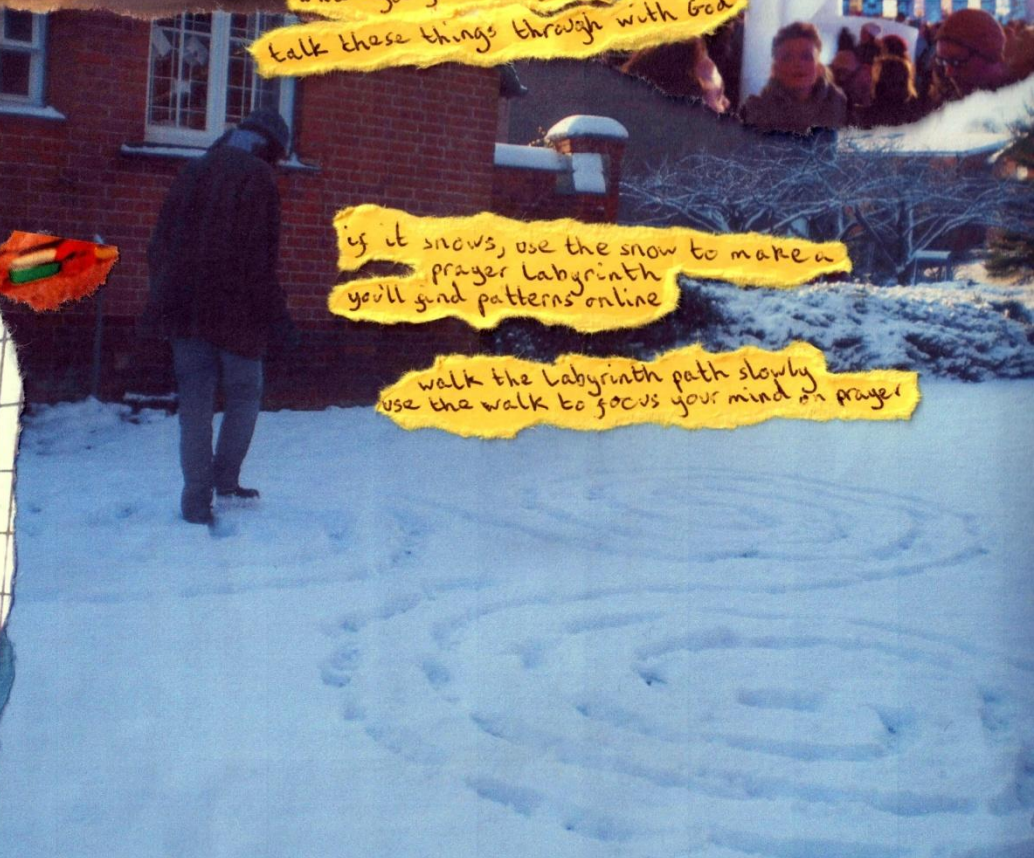 talk these things through with God
if it snows, use the snow to make a
prayer labyrinth
you'll find patterns online
walk the labyrinth path slowly
use the walk to focus your mind on prayer